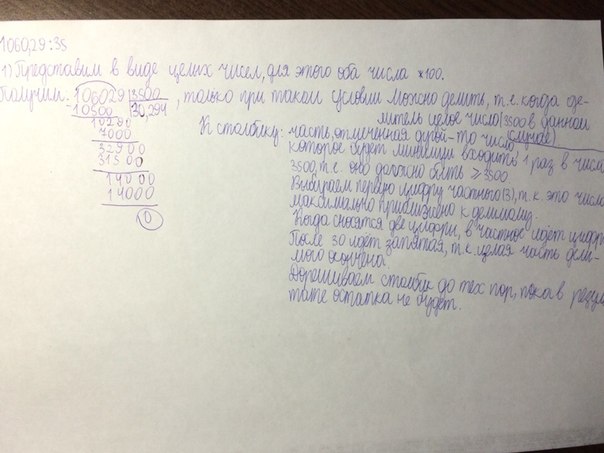 1060,29:35
1) Представим в виде целых чисел, для этого оба числа ×100.
Получим. 106029 |3500 , только при таком условии можно делить, т.е. когда де-
-10500 |30,294 литель целое число (3500 в данном
10290 случае)
7000 К столбику: часть, отмеченная дугой-то число
32900 которое будет минимум входить 1 раз в число
31500 3500, т.е. оно должно быть ≥3500.
14000 Выбираем первую цифру частного(3), т.к. это число
14000 максимально приближено к делимому.
0 Когда сносятся две цифры, в частное идёт цифра
После 30 идёт запятая, т.к. целая часть дели-
мого окончена.
Дорешиваем столбик до тех пор, пока в резуль
тате остатка не будет.